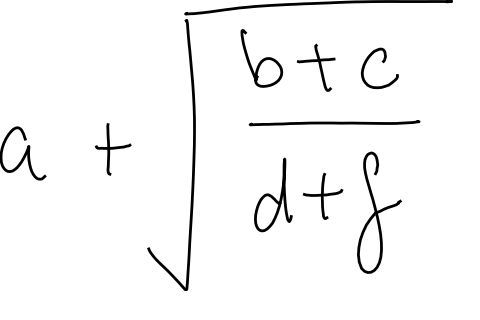 a + √((b+c)/(d+f))